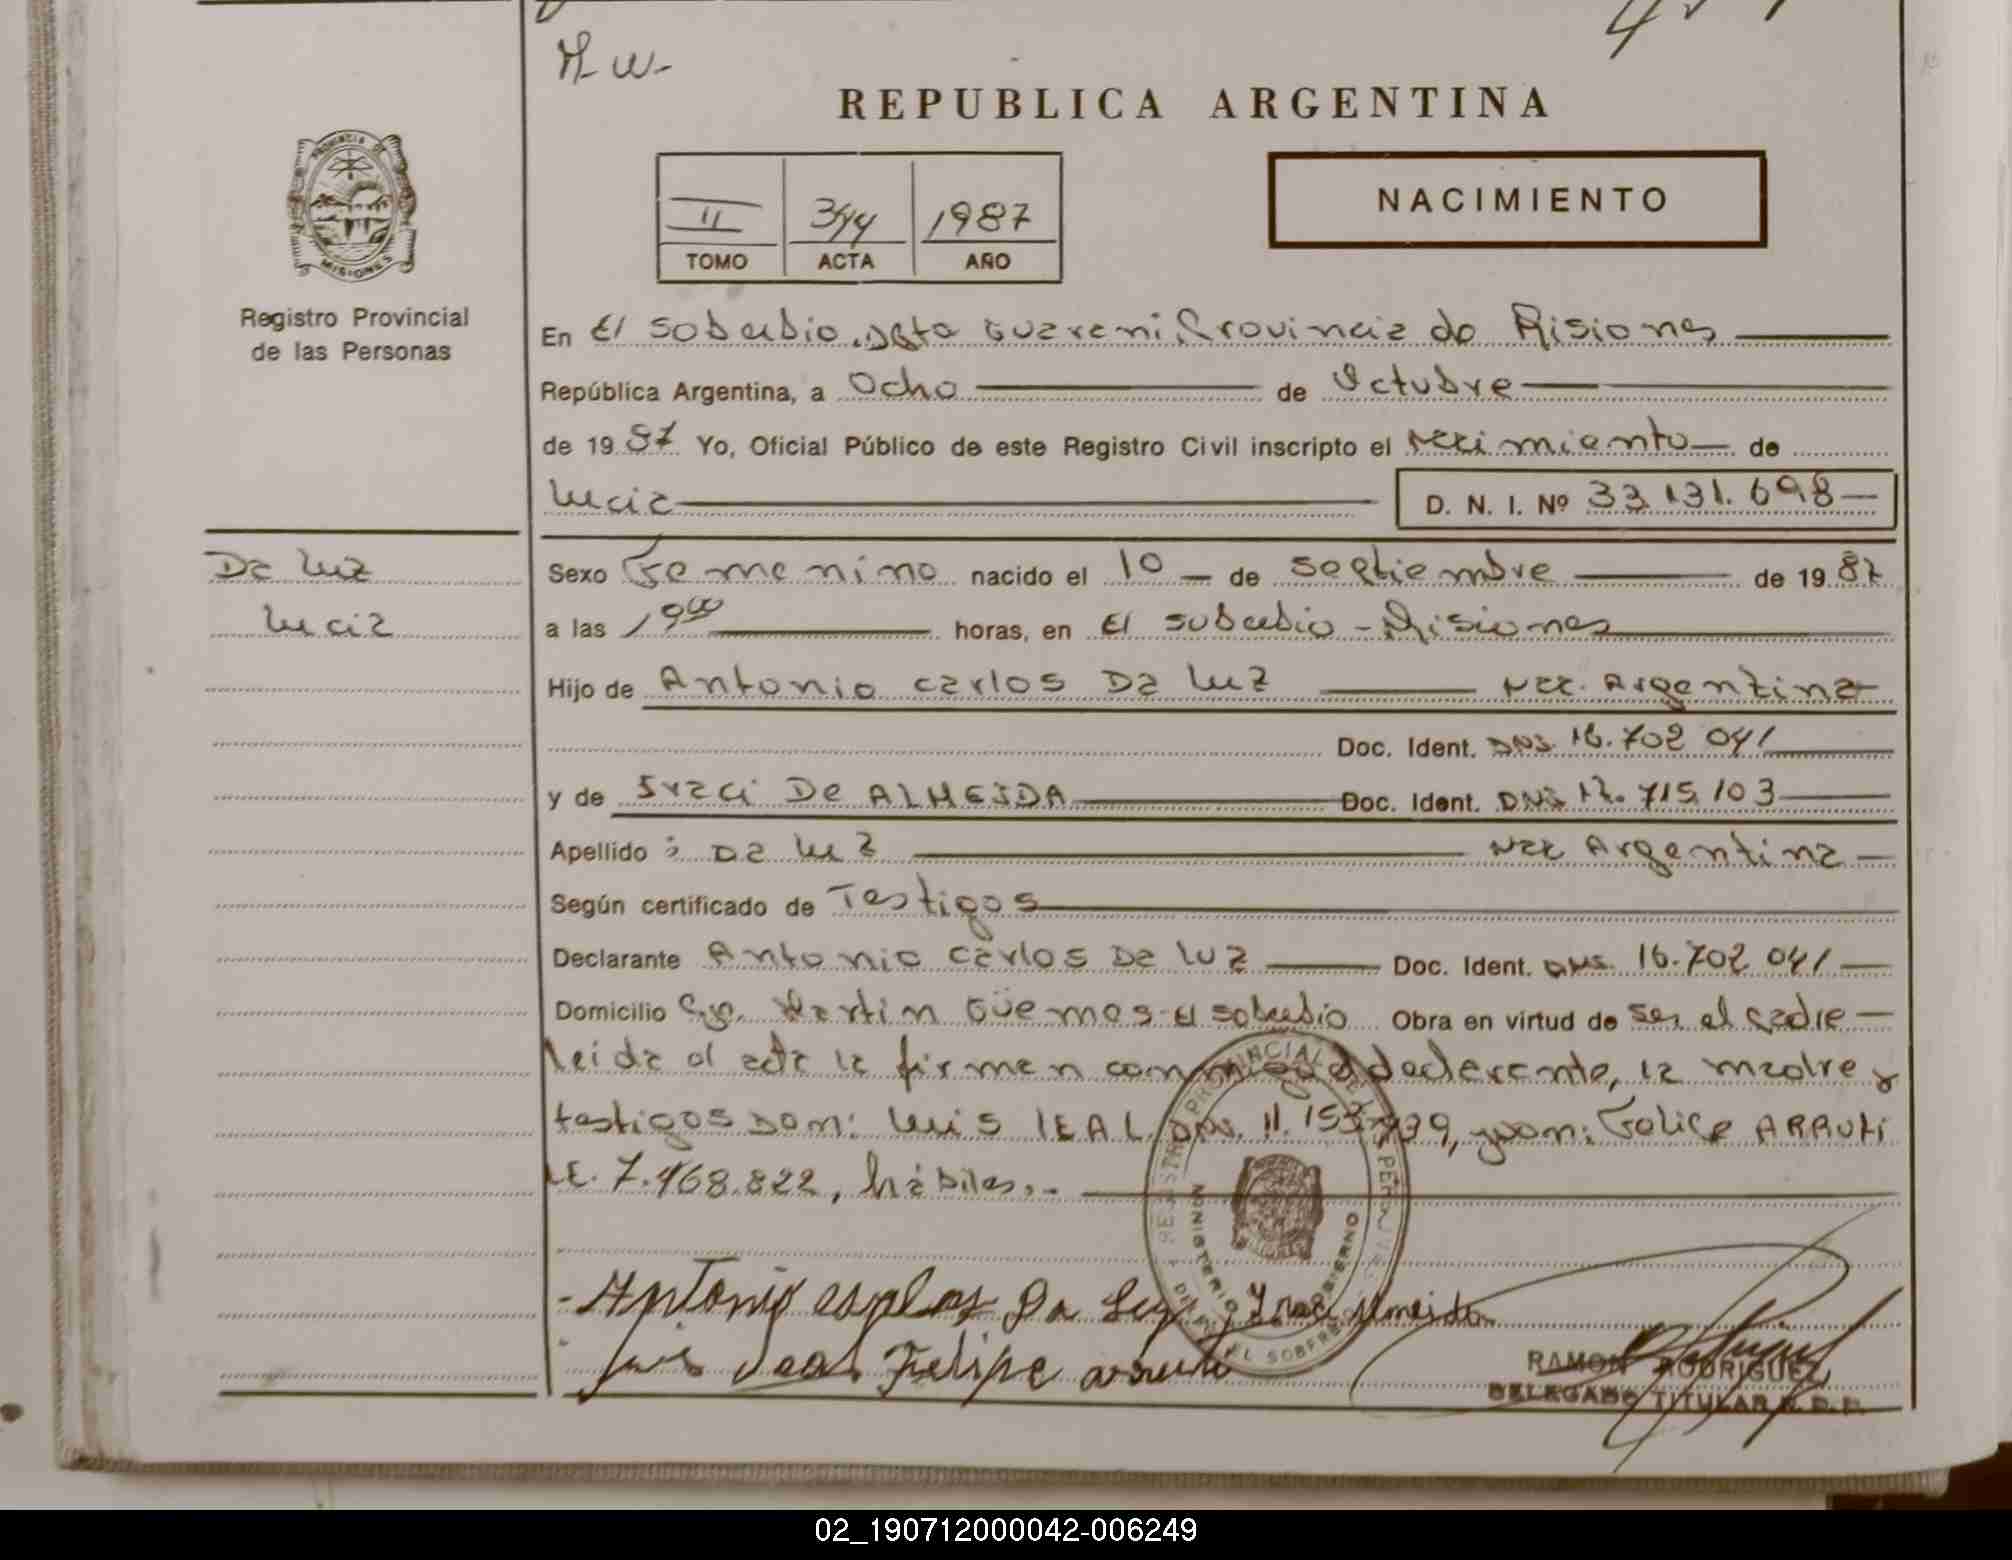 M. W-
REPUBLICA ARGENTINA
PROVINCIA DE
MISIONES
II 344 1987
TOMO ACTA AÑO
NACIMIENTO
Registro Provincial
de las Personas
En El Soberbio. Dpto Guarani Provincia de Misiones
República Argentina, a Ocho de Octubre
de 1987 Yo, Oficial Público de este Registro Civil inscripto el nacimiento de
Lucia D. N. I. Nº 33.131.698
Da Luz
Lucia
Sexo Femenino nacido el 10 de Septiembre de 1987
a las 19 00 horas, en El Soberbio - Misiones
Hijo de Antonio Carlos Da Luz Nac. Argentina
Doc. Ident. DNI. 16.702 041
y de Iraci De ALMEIDA Doc. Ident. DNI 17.715.103
Apellido : Da Luz Nac Argentina
Según certificado de Testigos
Declarante Antonio Carlos Da Luz Doc. Ident. DNI. 16.702 041
Domicilio Martin Güemes - El Soberbio Obra en virtud de ser el padre
leida el acta la firman conmigo el declarante, la madre y
testigos Don: Luis LEAL DNI. 11.153.739, y Don: Felipe ARRUTI
LE. 7.468.822, hábiles.-
REGISTRO PROVINCIAL DE LAS PERSONAS
MINISTERIO DE GOBIERNO
EL SOBERBIO
- Antonio Carlos Da Luz, Iraci Almeida
Luis Leal Felipe Arruti
RAMON RODRIGUEZ
DELEGADO TITULAR R. P. P.
02_190712000042-006249